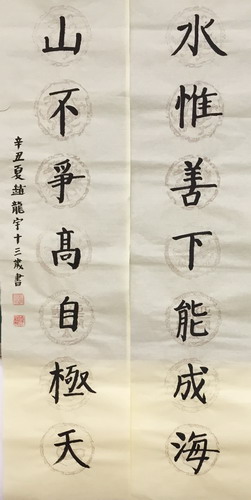 水惟善下能成海
山不爭髙自極天
辛丑夏趙龍宇十三歲書